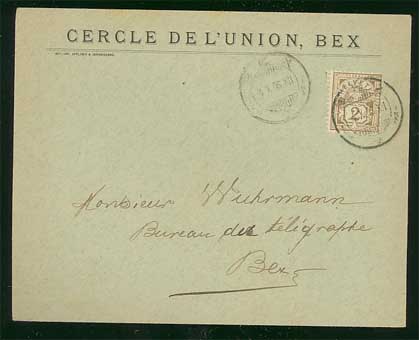 CERCLE DE L'UNION, BEX
2
Monsieur Wuhrmann
Bureau du télégraphe
Bex